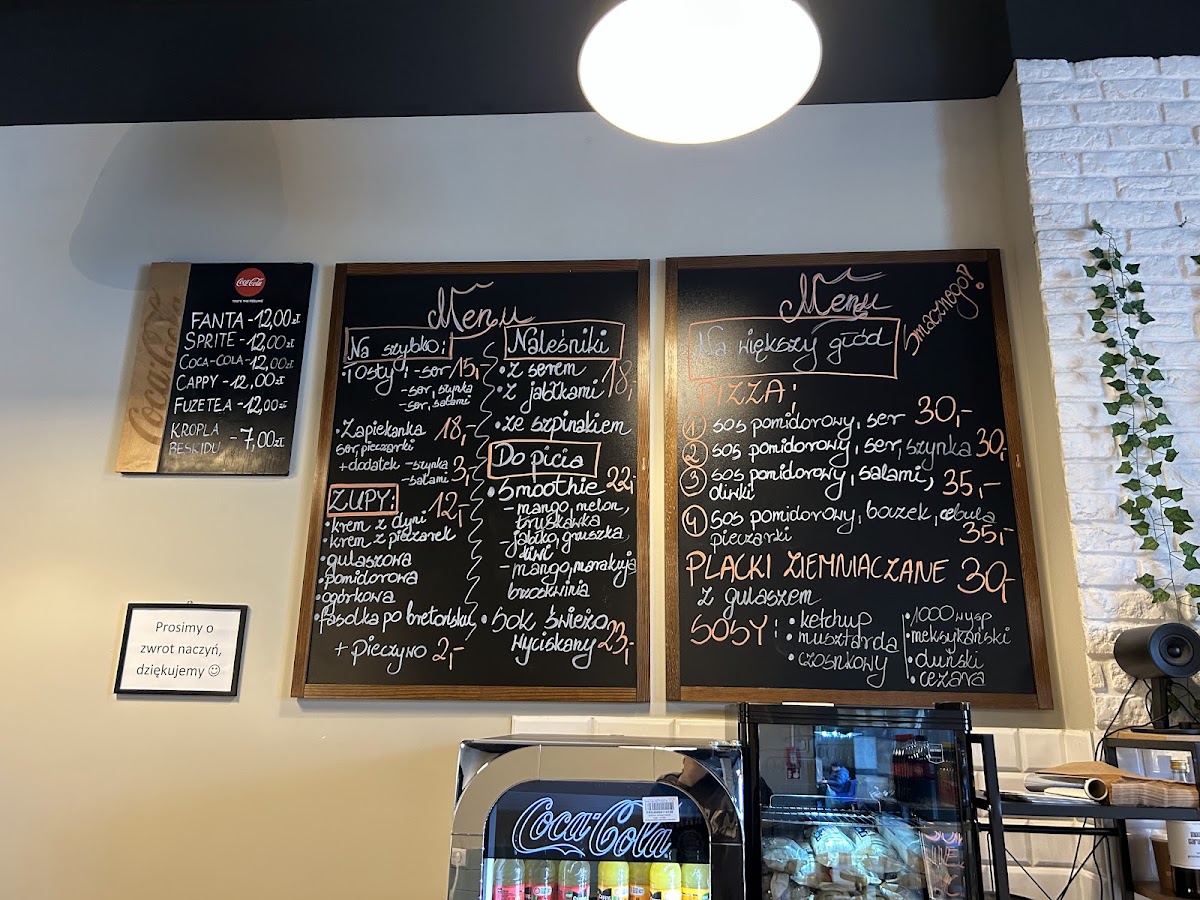 Coca-Cola
Coca-Cola
TASTE THE FEELING
FANTA - 12,00 zł
SPRITE - 12,00 zł
COCA-COLA - 12,00 zł
CAPPY - 12,00 zł
FUZETEA - 12,00 zł
KROPLA
BESKIDU - 7,00 zł
Prosimy o
zwrot naczyń,
dziękujemy ☺
Menu
Na szybko:
• Tosty: - ser 15,-
- ser, szynka
- ser, salami
• Zapiekanka 18,-
ser, pieczarki
+ dodatek - szynka 3,-
- salami
ZUPY: 12,-
• krem z dyni
• krem z pieczarek
• gulaszowa
• pomidorowa
• ogórkowa
• fasolka po bretońsku
+ pieczywo 2,-
Naleśniki
• z serem
• z jabłkami 18,-
• ze szpinakiem
Do picia
• Smoothie 22,-
- mango, melon,
truskawka
- jabłko, gruszka,
kiwi
- mango, marakuja
brzoskwinia
• Sok świeżo
wyciskany 23,-
Menu
Smacznego!
Na większy głód
PIZZA:
1 sos pomidorowy, ser 30,-
2 sos pomidorowy, ser, szynka 30,-
3 sos pomidorowy, salami, 35,-
oliwki
4 sos pomidorowy, boczek, cebula
pieczarki 35,-
PLACKI ZIEMNIACZANE 30,-
z gulaszem
SOSY:
• ketchup
• musztarda
• czosnkowy
• 1000 wysp
• meksykański
• duński
• cezara
Coca-Cola